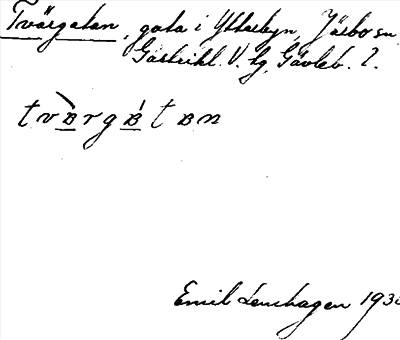 Tvärgatan, gata i Ytterbyn, Järbo sn,
Gästrikl. V. hg, Gävleb. l.
tvʙrgʙ́tʙn
Emil Lenhagen 193